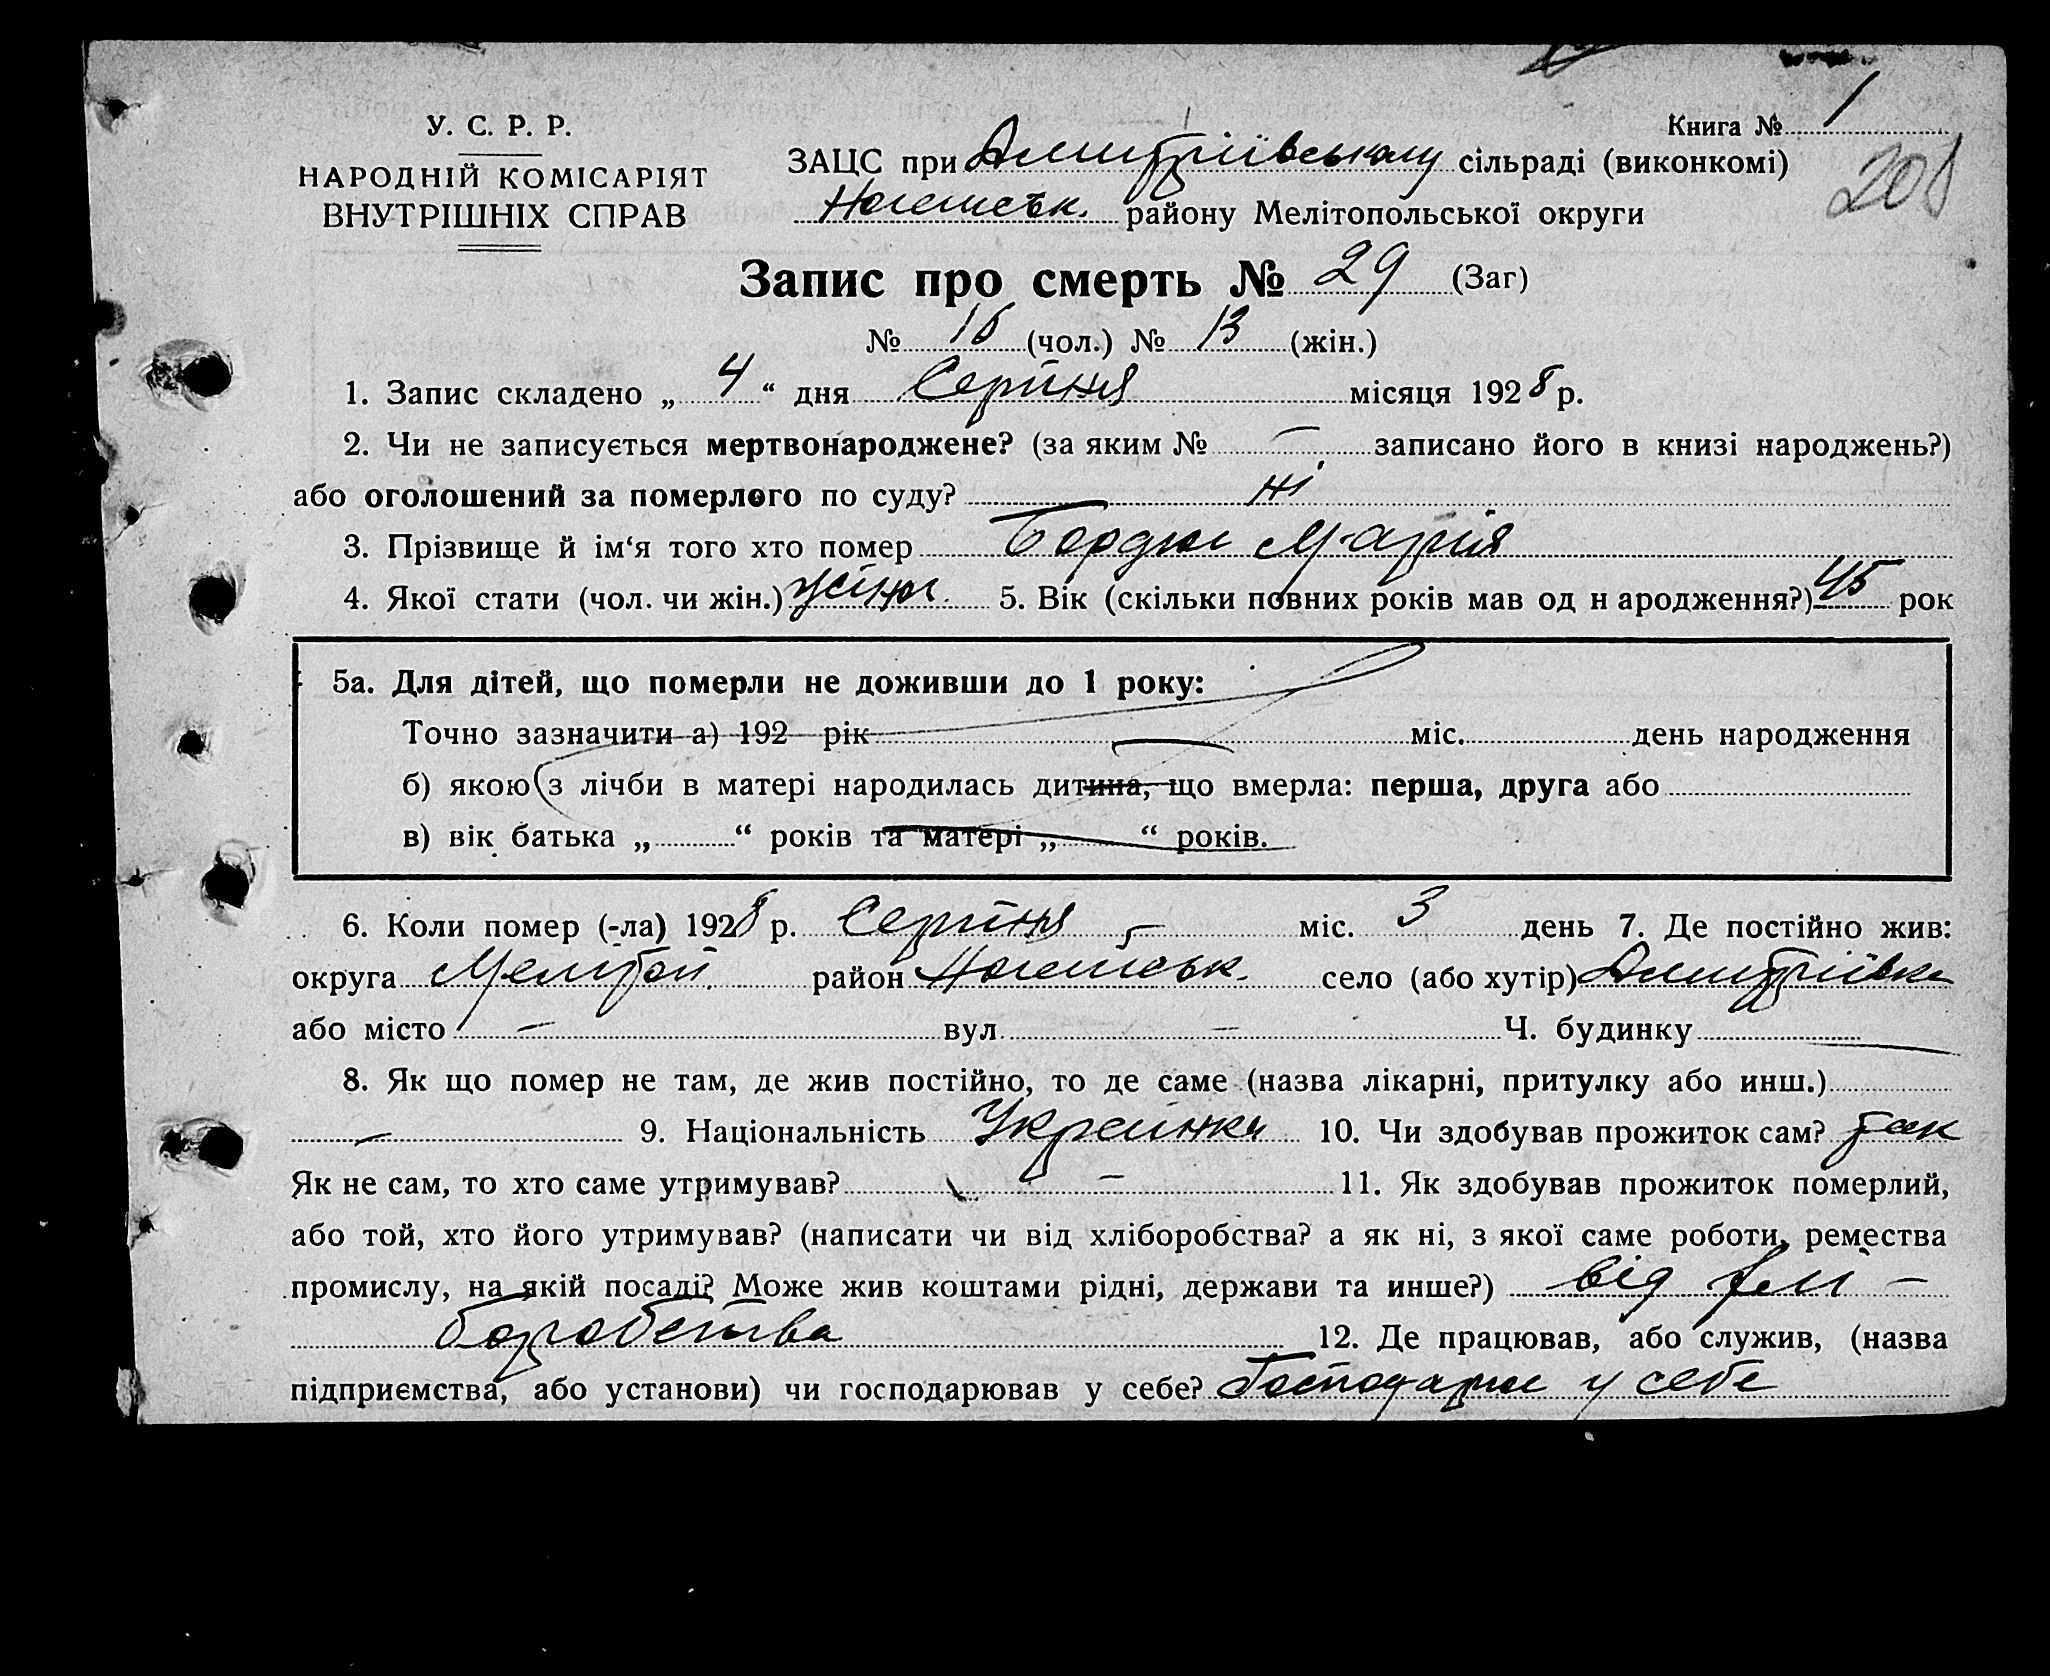 Книга № 1
208
У. С. Р. Р.
НАРОДНІЙ КОМІСАРІЯТ
ВНУТРІШНІХ СПРАВ
ЗАЦС при Дмитріївському сільраді (виконкомі)
Ногайськ. району Мелітопольської округи
Запис про смерть № 29 (Заг)
№ 16 (чол.) № 13 (жін.)
1. Запис складено „ 4 “ дня Серпня місяця 1928 р.
2. Чи не записується мертвонароджене? (за яким № — записано його в книзі народжень?)
або оголошений за померлого по суду? ні
3. Прізвище й ім‘я того хто помер Марія
4. Якої стати (чол. чи жін.) жіноч. 5. Вік (скільки повних років мав од н ародження?) 45 рок
5а. Для дітей, що померли не доживши до 1 року:
Точно зазначити а) 192 рік міс. день народження
б) якою з лічби в матері народилась дитина, що вмерла: перша, друга або
в) вік батька „ “ років та матері „ “ років.
6. Коли помер (-ла) 1928 р. Серпня — міс. 3 день 7. Де постійно жив:
округа Меліт район Ногайськ. село (або хутір) Дмитріївка
або місто — вул. — Ч. будинку —
8. Як що помер не там, де жив постійно, то де саме (назва лікарні, притулку або инш.)
— 9. Національність Украінка 10. Чи здобував прожиток сам? так
Як не сам, то хто саме утримував? — 11. Як здобував прожиток померлий,
або той, хто його утримував? (написати чи від хліборобства? а як ні, з якої саме роботи, ремества
промислу, на якій посаді? Може жив коштами рідні, держави та инше?) від хлі-
боробства 12. Де працював, або служив, (назва
підприємства, або установи) чи господарював у себе? Господарює у себе